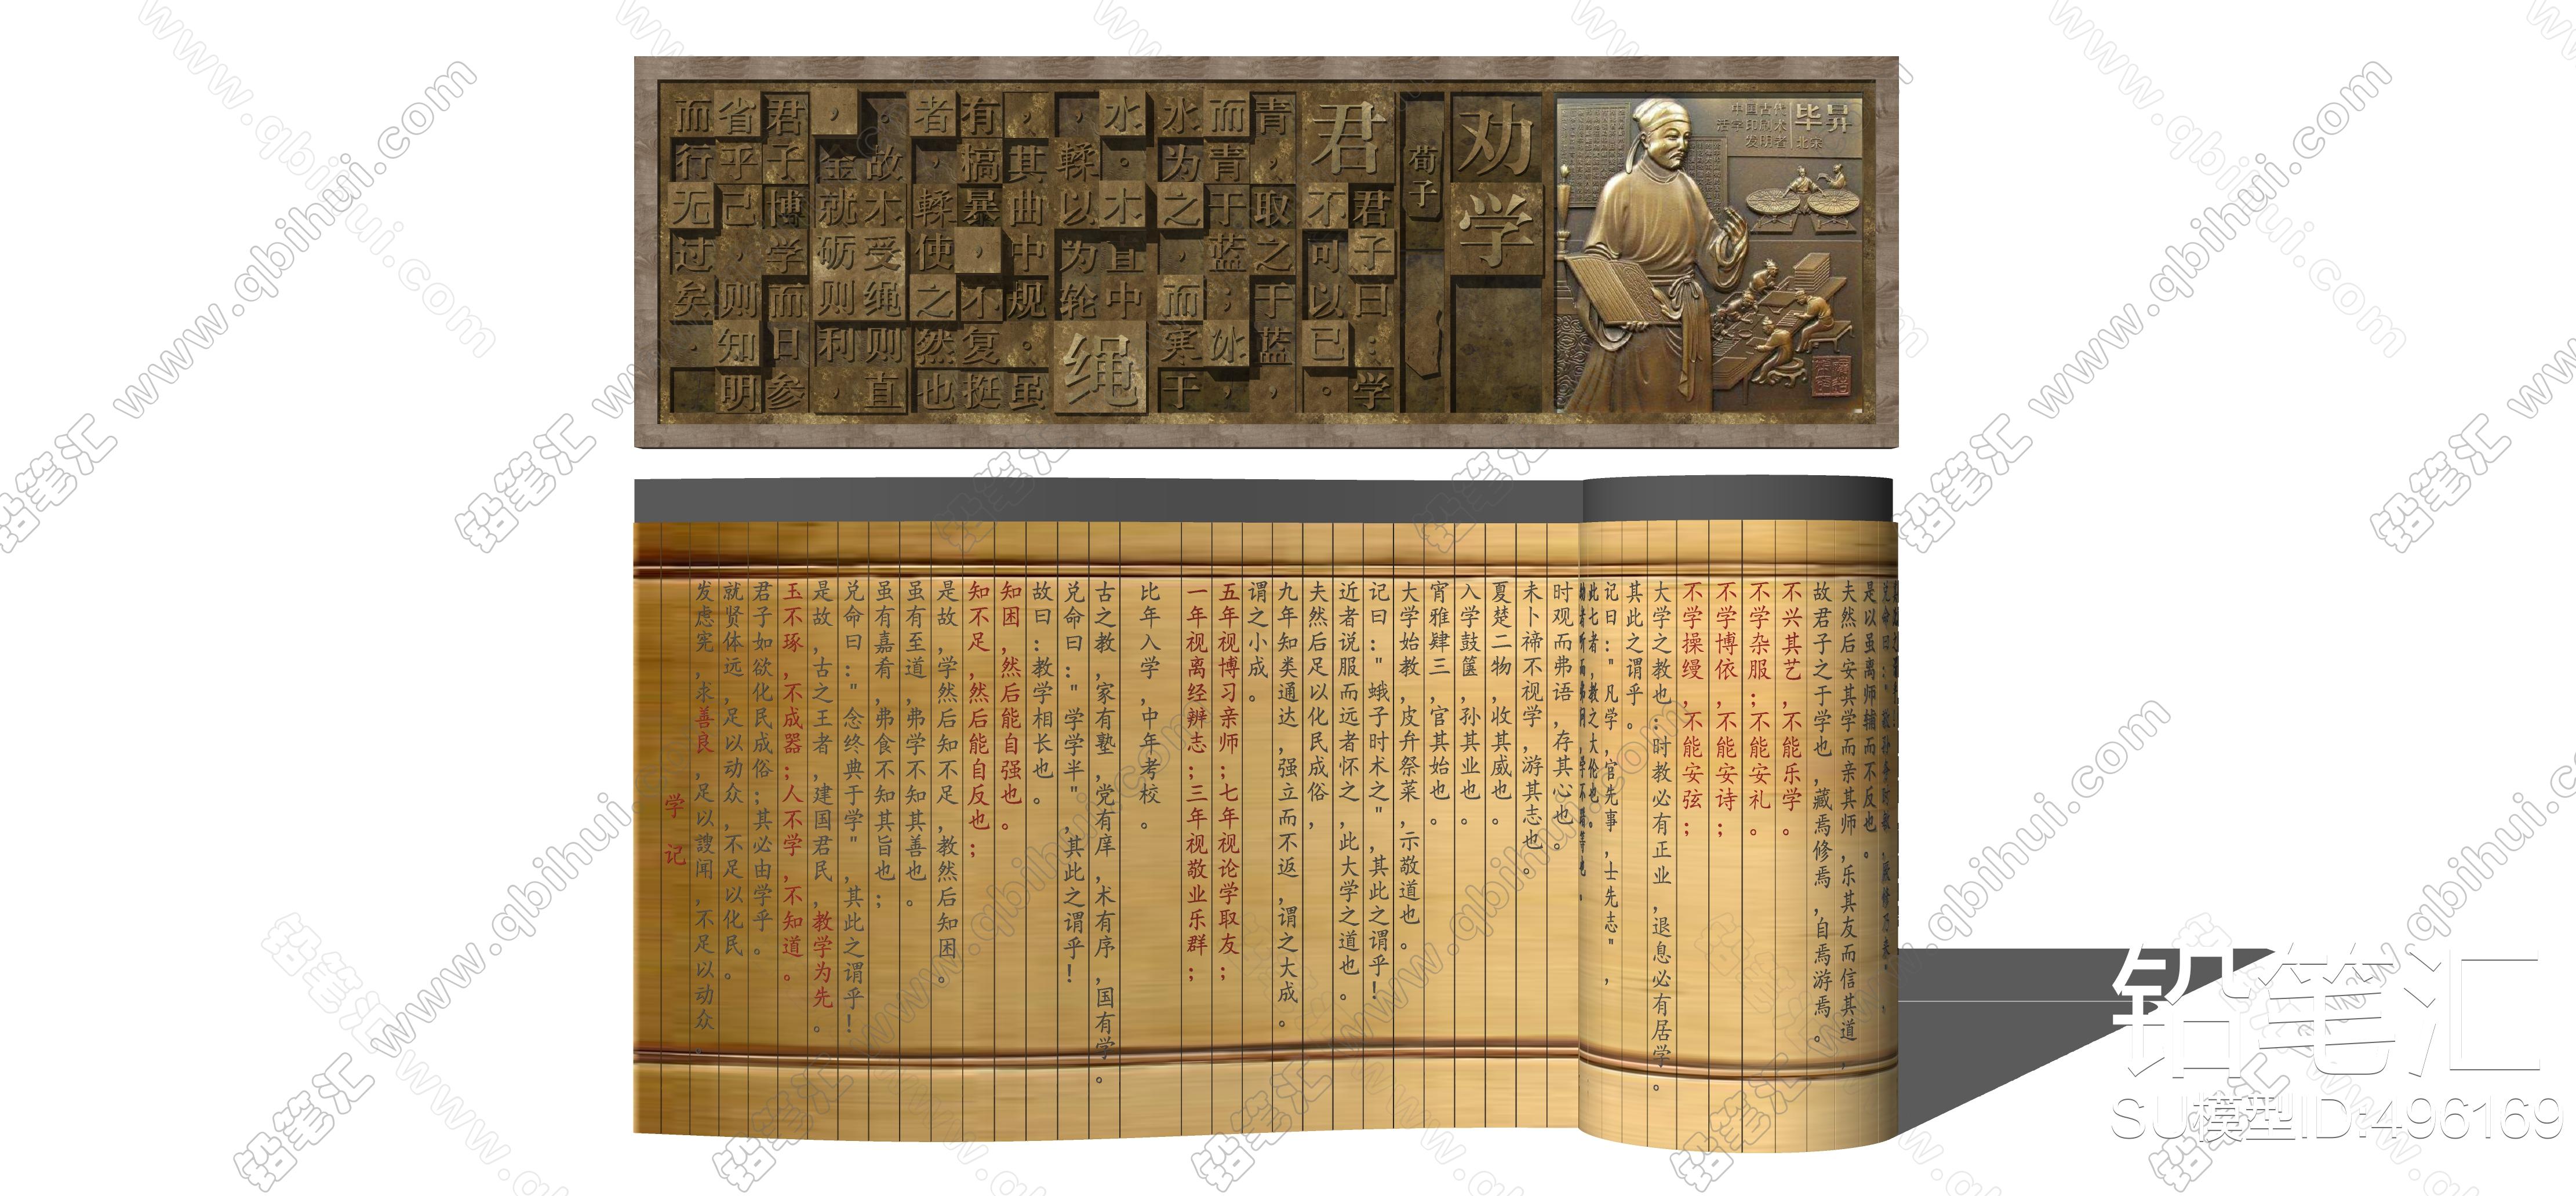 毕昇
北宋
中国古代
活字印刷术
发明者
劝学
荀子
君子曰：学
君
不可以已。
青，取之于蓝，
而青于蓝；冰，
水为之，而寒于
水。木直中绳
，輮以为轮
，其曲中规。虽
有槁暴，不复挺
者，輮使之然也
。故木受绳则直
，金就砺则利，
君子博学而日参
省乎己，则知明
而行无过矣。
学记
发虑宪，求善良，足以謏闻，不足以动众。
就贤体远，足以动众，不足以化民。
君子如欲化民成俗；其必由学乎。
玉不琢，不成器；人不学，不知道。
是故，古之王者，建国君民，教学为先。
兑命曰："念终典于学"，其此之谓乎！
虽有嘉肴，弗食不知其旨也；
虽有至道，弗学不知其善也。
是故，学然后知不足，教然后知困。
知不足，然后能自反也；
知困，然后能自强也。
故曰：教学相长也。
兑命曰："学学半"，其此之谓乎！
古之教，家有塾，党有庠，术有序，国有学。
比年入学，中年考校。
一年视离经辨志；三年视敬业乐群；
五年视博习亲师；七年视论学取友；
谓之小成。
九年知类通达，强立而不返，谓之大成。
夫然后足以化民成俗，
近者说服而远者怀之，此大学之道也。
记曰："蛾子时术之"，其此之谓乎！
大学始教，皮弁祭菜，示敬道也。
宵雅肄三，官其始也。
入学鼓箧，孙其业也。
夏楚二物，收其威也。
未卜禘不视学，游其志也。
时观而弗语，存其心也。
此七者，教之大伦也。
记曰："凡学，官先事，士先志"，
其此之谓乎。
大学之教也：时教必有正业，退息必有居学。
不学操缦，不能安弦；
不学博依，不能安诗；
不学杂服；不能安礼。
不兴其艺，不能乐学。
故君子之于学也，藏焉修焉，自焉游焉。
夫然后安其学而亲其师，乐其友而信其道，
是以虽离师辅而不反也。
铅笔汇
SU模型ID:496169
铅笔汇 www.qbihui.com